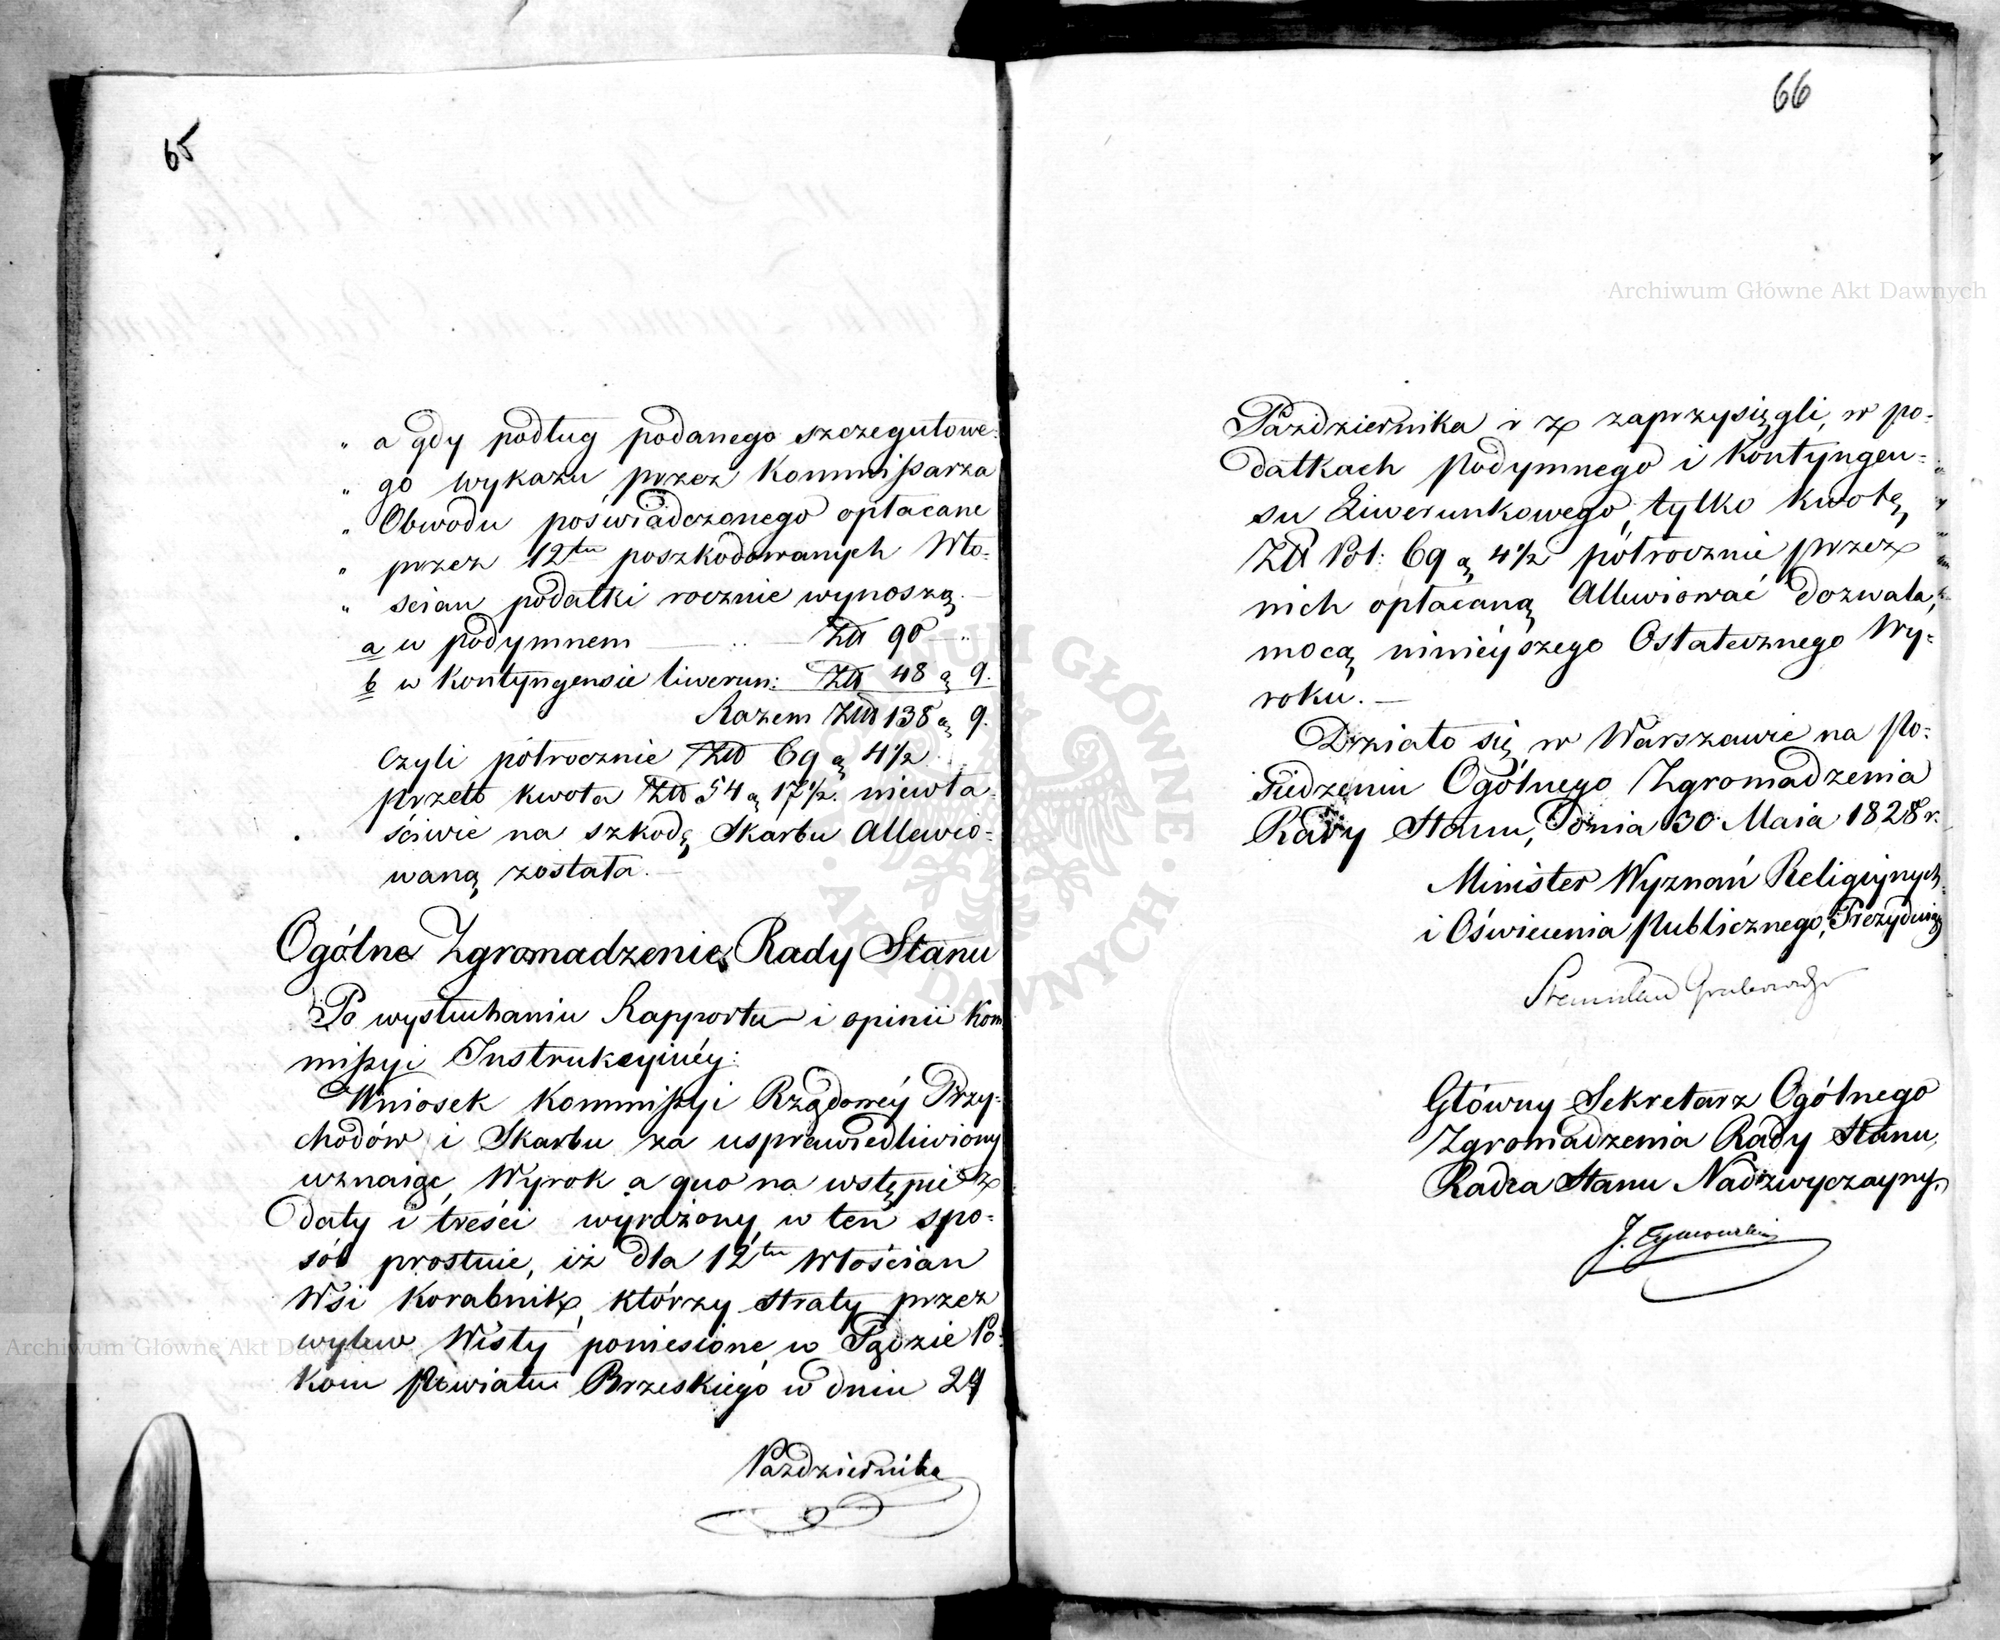 65
„ a gdy podług podanego szczegułowe-
„ go wykazu przez Kommißarza
„ Obwodu poświadczonego opłacane
„ przez 12tu poszkodowanych Wło-
„ ścian podatki rocznie wynoszą.
a w podymnem — Złł 90 „
b w Kontyngensie liwerun: Złł 48 g 9.
Razem Złł 138 g 9.
czyli półrocznie Złł 69 g 4½
przeto kwota Złł 54 g 17½. niewła-
ściwie na szkodę Skarbu Allewio-
waną została. —
Ogólne Zgromadzenie Rady Stanu
Po wysłuchaniu Rapportu i opinii Kom
mißyi Instrukcyinéy:
Wniosek Kommißyi Rządowéy Przy-
chodów i Skarbu za usprawiedliwiony
uznaiąc, Wyrok a quo na wstępie z
daty i treści wyrażony w ten spo-
sób prostuie, iż dla 12tu Włościan
Wsi Korabnik, którzy straty przez
wylew Wisły poniesione w Sądzie Po-
koiu Powiatu Brzeskiego w dniu 29
Października
66
Października r z zaprzysięgli, w po-
datkach Podymnego i Kontyngen-
su Liwerunkowego, tylko kwotę
Złł Pol: 69 g 4½ półrocznie przez
nich opłacaną Alleviować dozwala,
mocą ninieyszego Ostatecznego Wy-
roku. —
Działo się w Warszawie na Po-
siedzeniu Ogólnego Zgromadzenia
Rady Stanu, Dnia 30 Maia 1828 r.
Minister Wyznań Religiynych
i Oświecenia Publicznego, Prezyduiący
Stanisław Grabowski
Główny Sekretarz Ogólnego
Zgromadzenia Rady Stanu,
Radca Stanu Nadzwyczayny,
J. Tymowski
Archiwum Główne Akt Dawnych
Archiwum Główne Akt Dawnych
ARCHIWUM GŁÓWNE · AKT DAWNYCH ·